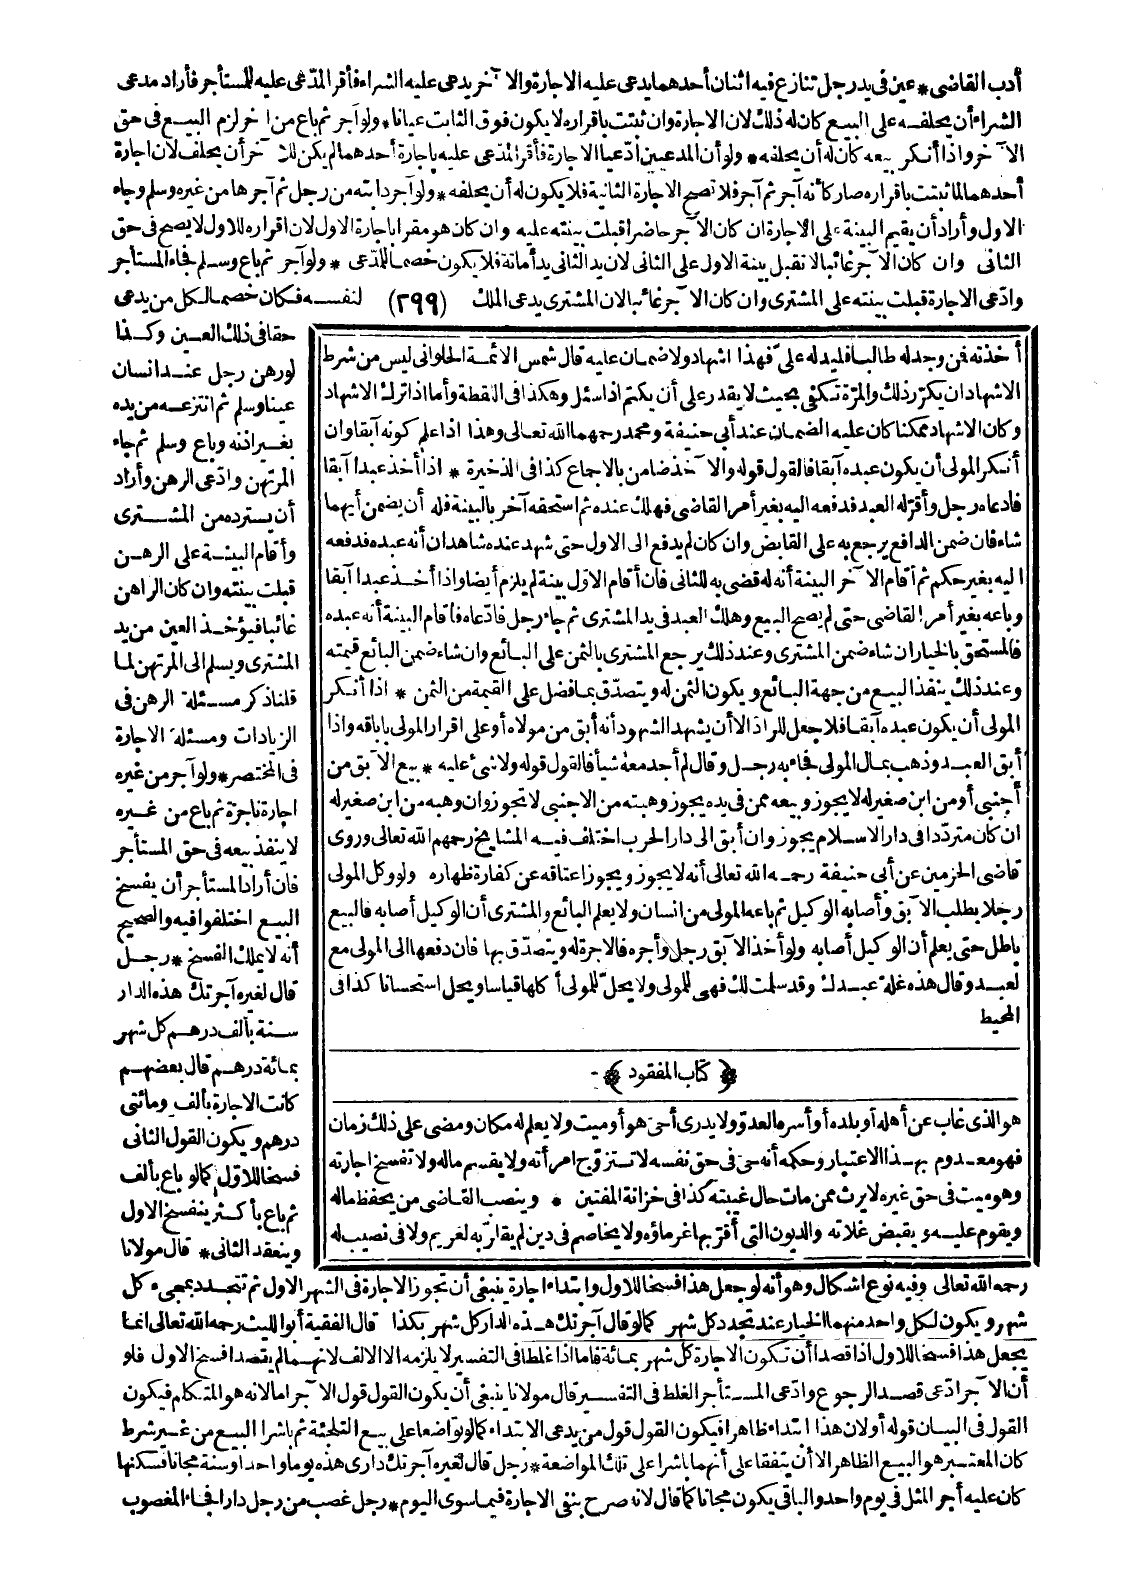 أدب القاضى * عين فى يد رجل تنازع فيه اثنان أحدهما يدعى عليه الاجارة والا خر يدعى عليه الشراء فأقر المدّعى عليه للمستأجر فأراد مدعى
الشراء أن يحلفه على البيع كان له ذلك لان الاجارة وان ثبتت باقراره لا يكون فوق الثابت عيانا * ولو آجر ثم باع من اخر لزم البيع فى حق
الا خر واذا أنكر بيعه كان له أن يحلفه * ولو أن المدعيين ادّعيا الاجارة فأقر المدّعى عليه باجارة أحدهما لم يكن للا خر أن يحلف لان اجارة
أحدهما لما ثبتت باقراره صار كأنه آجر ثم آجر فلا تصح الاجارة الثانية فلا يكون له أن يحلفه * ولو آجر دابته من رجل ثم آجرها من غيره وسلم وجاء
الاول وأراد أن يقيم البينة على الاجارة ان كان الآجر حاضرا قبلت بينته عليه وان كان هو مقرا باجارة الاول لان اقراره للاول لا يصح فى حق
الثانى وان كان الآجر غائبا لا تقبل بينة الاول على الثانى لان يد الثانى يد أمانة فلا يكون خصما للمدّعى * ولو آجر ثم باع وسلم فجاء المستأجر
وادّعى الاجارة قبلت بينته على المشترى وان كان الآجر غائبا لان المشترى يدعى الملك (٢٩٩) لنفسه فكان خصما لكل من يدعى
حقا فى ذلك العين وكذا
لو رهن رجل عند انسان
عينا وسلم ثم انتزعه من يده
بغير اذنه وباع وسلم ثم جاء
المرتهن وادّعى الرهن وأراد
أن يسترده من المشترى
وأقام البينة على الرهن
قبلت بينته وان كان الراهن
غائبا فيؤخذ العين من يد
المشترى ويسلم الى المرتهن لما
قلنا ذكر مسئلة الرهن فى
الزيادات ومسئلة الاجارة
فى المختصر * ولو آجر من غيره
اجارة ناجزة ثم باع من غيره
لا ينفذ بيعه فى حق المستأجر
فان أراد المستأجر أن يفسخ
البيع اختلفوا فيه والصحيح
أنه لا يملك الفسخ * رجل
قال لغيره آجرتك هذه الدار
سنة بألف درهم كل شهر
بمائة درهم قال بعضهم
كانت الاجارة بألف ومائتى
درهم ويكون القول الثانى
فسخا للاول كما لو باع بألف
ثم باع بأكثر ينفسخ الاول
وينعقد الثانى * قال مولانا
أخذته فمن وجد له طالبا فليدله علىّ فهذا اشهاد ولا ضمان عليه قال شمس الائمة الحلوانى ليس من شرط
الاشهاد ان يكرّر ذلك والمرّة تكفى بحيث لا يقدر على أن يكتم اذا سئل وهكذا فى اللقطة وأما اذا ترك الاشهاد
وكان الاشهاد ممكنا كان عليه الضمان عند أبى حنيفة ومحمد رحمهما الله تعالى وهذا اذا علم كونه آبقا وان
أنكر المولى أن يكون عبده آبقا فالقول قوله والا خذ ضامن بالاجماع كذا فى الذخيرة * اذا أخذ عبدا آبقا
فادعاه رجل وأقرّ له العبد فدفعه اليه بغير أمر القاضى فهلك عنده ثم استحقه آخر بالبينة فله أن يضمن أيهما
شاء فان ضمن الدافع يرجع به على القابض وان كان لم يدفع الى الاول حتى شهد عنده شاهدان أنه عبده فدفعه
اليه بغير حكم ثم أقام الا خر البينة أنه له قضى به للثانى فان أقام الاوّل بينة لم يلزم أيضا واذا أخذ عبدا آبقا
وباعه بغير أمر القاضى حتى لم يصح البيع وهلك العبد فى يد المشترى ثم جاء رجل فادّعاه فأقام البينة أنه عبده
فالمستحق بالخيار ان شاء ضمن المشترى وعند ذلك يرجع المشترى بالثمن على البائع وان شاء ضمن البائع قيمته
وعند ذلك ينفذ البيع من جهة البائع ويكون الثمن له ويتصدّق بما فضل على القيمة من الثمن * اذا أنكر
المولى أن يكون عبده آبقا فلا جعل للراد الا أن يشهد الشهود أنه أبق من مولاه أو على اقرار المولى باباقه واذا
أبق العبد وذهب بمال المولى فجاء به رجل وقال لم أجد معه شيأ فالقول قوله ولا شئ عليه * بيع الآبق من
أجنبى أو من ابن صغير له لا يجوز وبيعه ممن فى يده يجوز وهبته من الاجنبى لا تجوز وان وهبه من ابن صغير له
ان كان متردّدا فى دار الاسلام يجوز وان أبق الى دار الحرب اختلف فيه المشايخ رحمهم الله تعالى وروى
قاضى الحرمين عن أبى حنيفة رحمه الله تعالى أنه لا يجوز ويجوز اعتاقه عن كفارة ظهاره ولو وكل المولى
رجلا بطلب الآبق وأصابه الوكيل ثم باعه المولى من انسان ولا يعلم البائع والمشترى أن الوكيل أصابه فالبيع
باطل حتى يعلم أن الوكيل أصابه ولو أخذ الآبق رجل وأجره فالاجرة له ويتصدّق بها فان دفعها الى المولى مع
لعبد وقال هذه غلة عبدك وقد سلمت لك فهى للمولى ولا يحلّ للمولى أكلها قياسا ويحل استحسانا كذا فى
المحيط
﴿ كتاب المفقود ﴾
هو الذى غاب عن أهله أو بلده أو أسره العدوّ ولا يدرى أحىّ هو أو ميت ولا يعلم له مكان ومضى على ذلك زمان
فهو معدوم بهذا الاعتبار وحكمه أنه حىّ فى حق نفسه لا تتزوّج امرأته ولا يقسم ماله ولا تفسخ اجارته
وهو ميت فى حق غيره لا يرث ممن مات حال غيبته كذا فى خزانة المفتين * وينصب القاضى من يحفظ ماله
ويقوم عليه ويقبض غلاته والديون التى أقرّ بها غرماؤه ولا يخاصم فى دين لم يقارّ به الغريم ولا فى نصيب له
رحمه الله تعالى وفيه نوع اشكال وهو أنه لو جعل هذا فسخا للاول وابتداء اجارة ينبغى أن تجوز الاجارة فى الشهر الاول ثم تتجدد بمجىء كل
شهر ويكون لكل واحد منهما الخيار عند تجدد كل شهر كما لو قال آجرتك هذه الدار كل شهر بكذا قال الفقيه أبو الليث رحمه الله تعالى انما
يجعل هذا فسخا للاول اذا قصدا أن تكون الاجارة كل شهر بمائة فاما اذا غلطا فى التفسير لا يلزمه الا الالف لانهما لم يقصدا فسخ الاول فلو
أن الآجر ادّعى قصد الرجوع وادّعى المستأجر الغلط فى التفسير قال مولانا ينبغى أن يكون القول قول الآجر اما لانه هو المتكلم فيكون
القول فى البيان قوله أو لان هذا ابتداء ظاهرا فيكون القول قول من يدعى الابتداء كما لو تواضعا على بيع التلجئة ثم باشرا البيع من غير شرط
كان المعتبر هو البيع الظاهر الا أن يتفقا على أنهما باشرا على تلك المواضعة * رجل قال لغيره آجرتك دارى هذه يوما واحدا وسنة مجانا فسكنها
كان عليه أجر المثل فى يوم واحد والباقى يكون مجانا كما قال لانه صرح بنفى الاجارة فيما سوى اليوم * رجل غصب من رجل دارا فجاء المغصوب